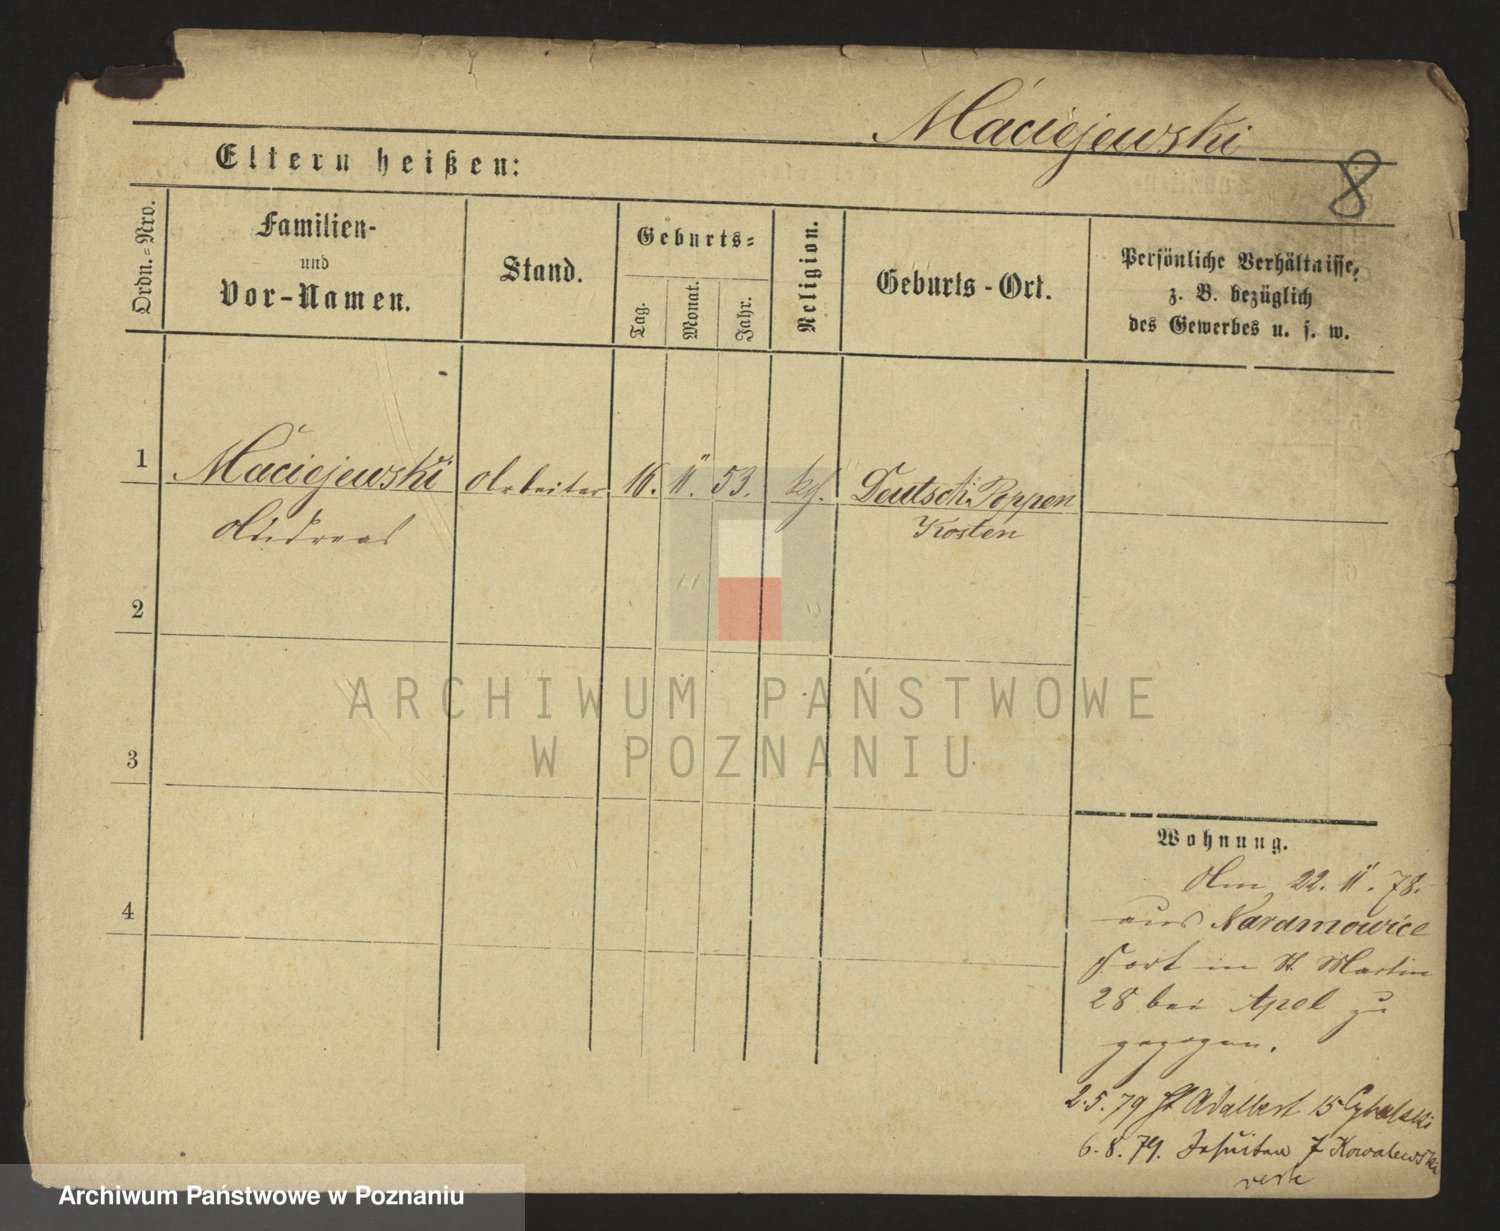 Maciejewski
8
Eltern heißen:
Ordn.-Nro.
Familien-
und
Vor-Namen.
Stand.
Geburts-
Tag.
Monat.
Jahr.
Religion.
Geburts-Ort.
Persönliche Verhältnisse,
z. B. bezüglich
des Gewerbes u. s. w.
1
Maciejewski Arbeiter 16. 11. 53. kth. Deutsch Poppen
Andreas
Kosten
2
3
4
ARCHIWUM PAŃSTWOWE
W POZNANIU
Wohnung.
Am 22. 11. 78.
aus Naramowice
Fort in St Martin
28 bei Apel zu
gezogen.
2.5.79 St Adalbert 15 Cybulski
6.8.79. Jesuiten 7 Kowalewski
Archiwum Państwowe w Poznaniu